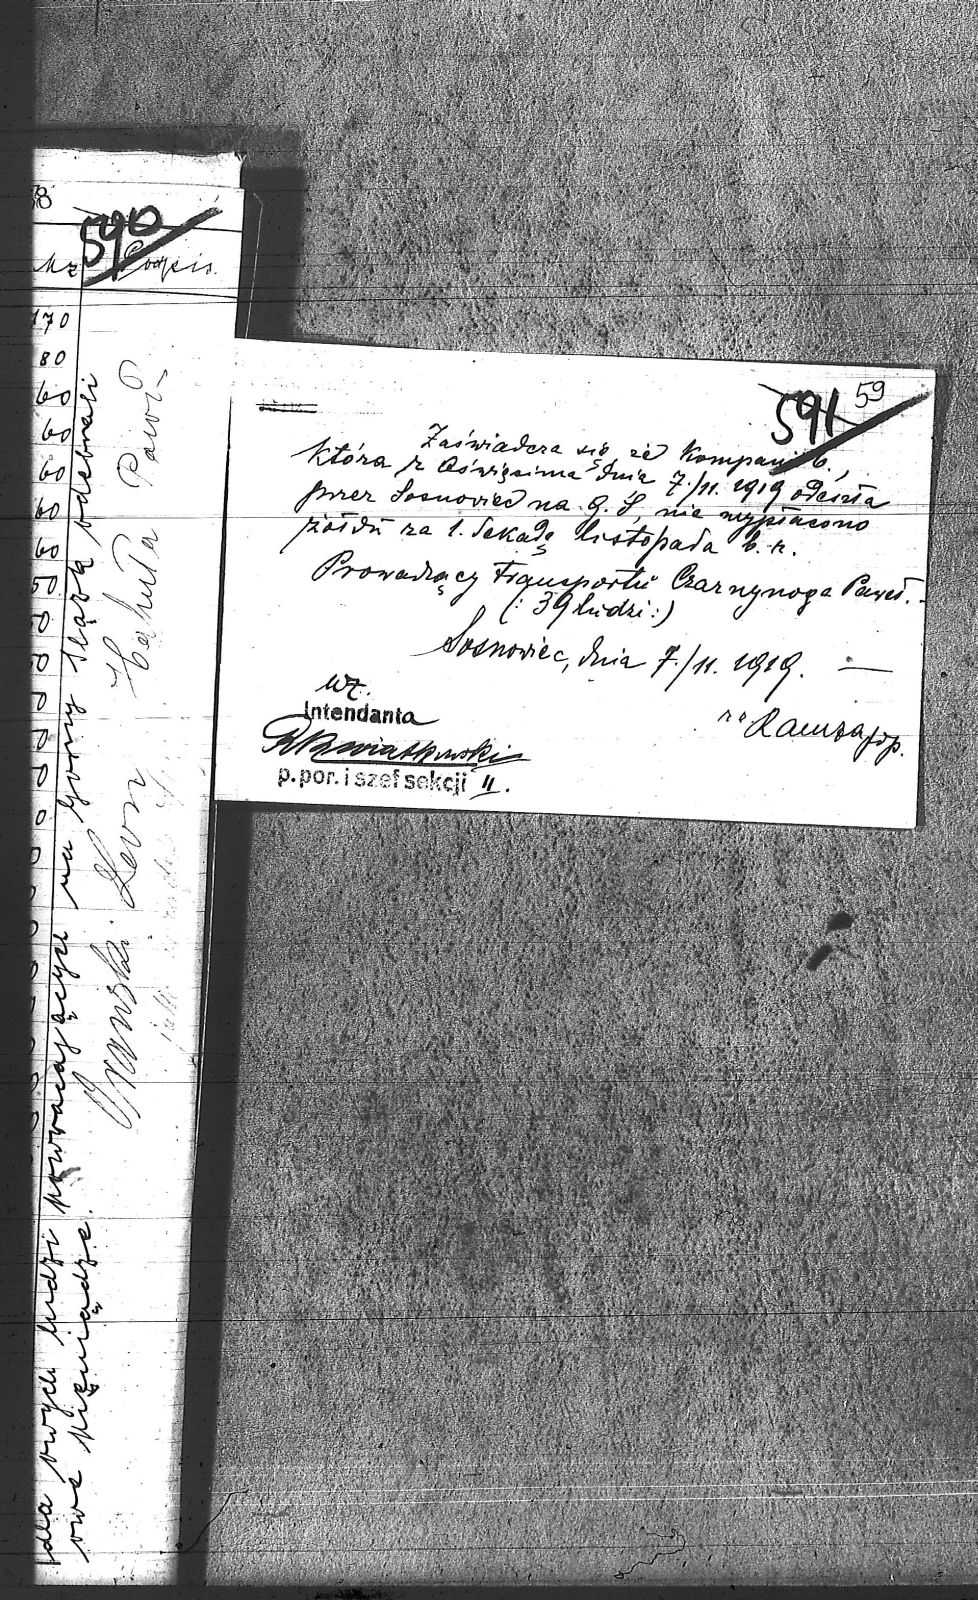 58
590
Mz Podpis.
170
80
60
60
60
60
60
50
dla owych ludzi powracających na Górny Śląsk odebrali
owe pieniądze.
Pawel
Leon
591 59
Zaświadcza się że Kompani 6.,
która z Oświęcima dnia 7./11. 1919 odeszła
przez Sosnowiec na G. S, nie wypłacono
żołdu za 1. dekadę listopada b. r.
Prowadzący transportu Czarnynoga Paweł.
(: 39 ludzi :)
Sosnowiec, dnia 7./11. 1919. —
wz.
Intendanta
Kwiatkowski
p. por. i szef sekcji II.
Ramza pp.